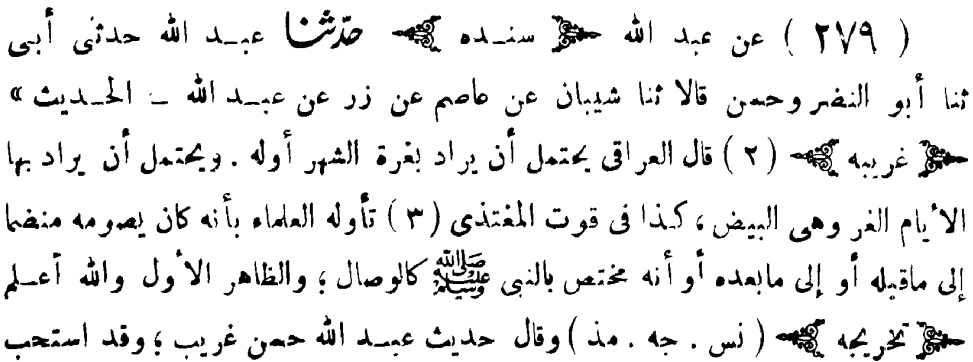 ( ٢٧٩ ) عن عبد الله ﴿ سنده ﴾ حدثنا عبد الله حدثنى أبى
ثنا أبو النضر وحسن قالا ثنا شيبان عن عاصم عن زر عن عبد الله ـ الحديث »
﴿ غريبه ﴾ ( ٢ ) قال العراقى يحتمل أن يراد بغرة الشهر أوله . ويحتمل أن يراد بها
الأيام الغر وهى البيض ، كذا فى قوت المغتذى ( ٣ ) تأوله العلماء بأنه كان يصومه منضما
إلى ماقبله أو إلى مابعده أو أنه مختص بالنبى ﷺ كالوصال ؛ والظاهر الأول والله أعلم
﴿ تخريجه ﴾ ( نس . جه . مذ ) وقال حديث عبد الله حسن غريب ؛ وقد استحب